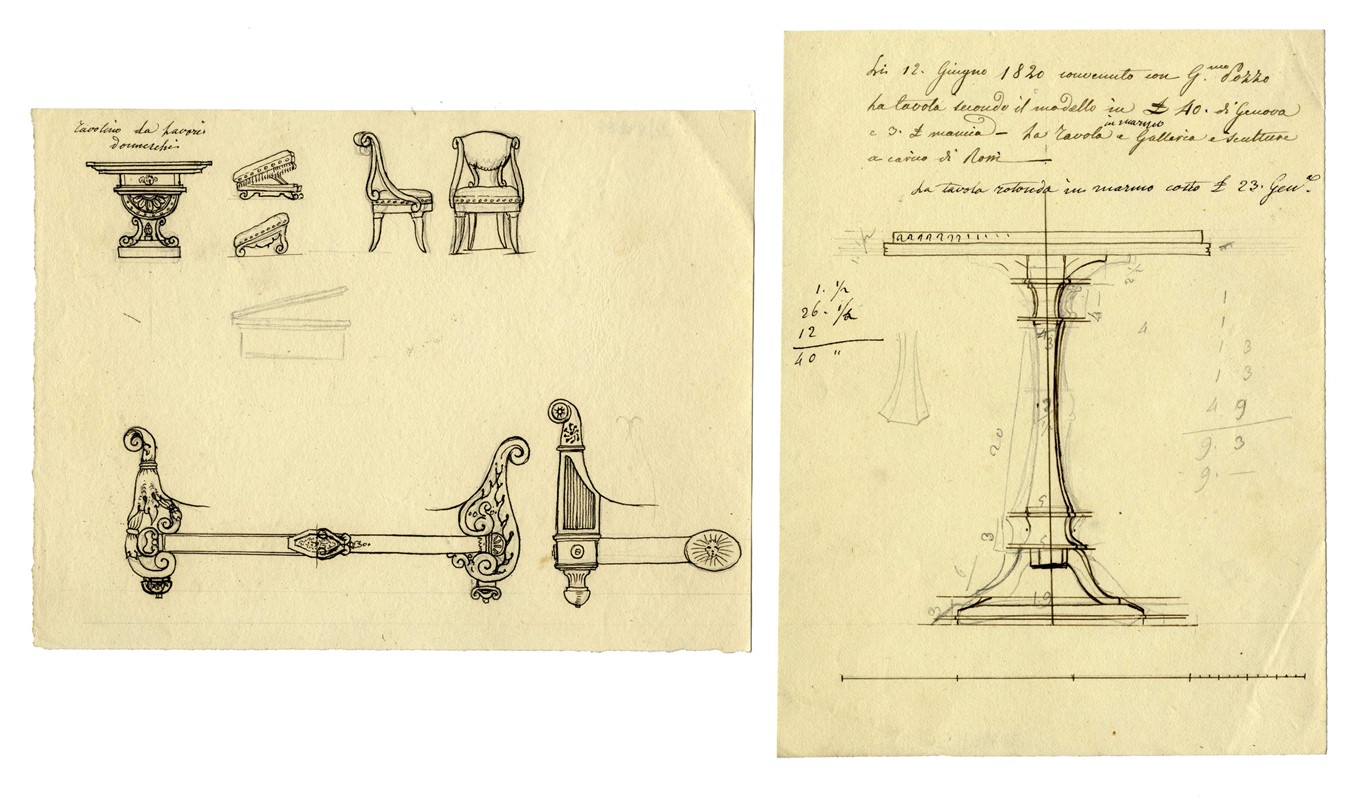 Tavolino da Lavori
donneschi
30.
Li 12. Giugno 1820 convenuto con G.mo Pozzo
La tavola secondo il modello in £ 40. di Genova
e 3. £ mancia – La Tavola in marmo e Galleria e sculture
a carico di
La tavola rotonda in marmo costo £ 23. Gen.a
1. 1/2
2 1/2
1. 1/2
26. 1/2
12
40 "
4
4
3
20
3
6
3
19
1
1
1 3
1 3
4 9
9. 3
9. —